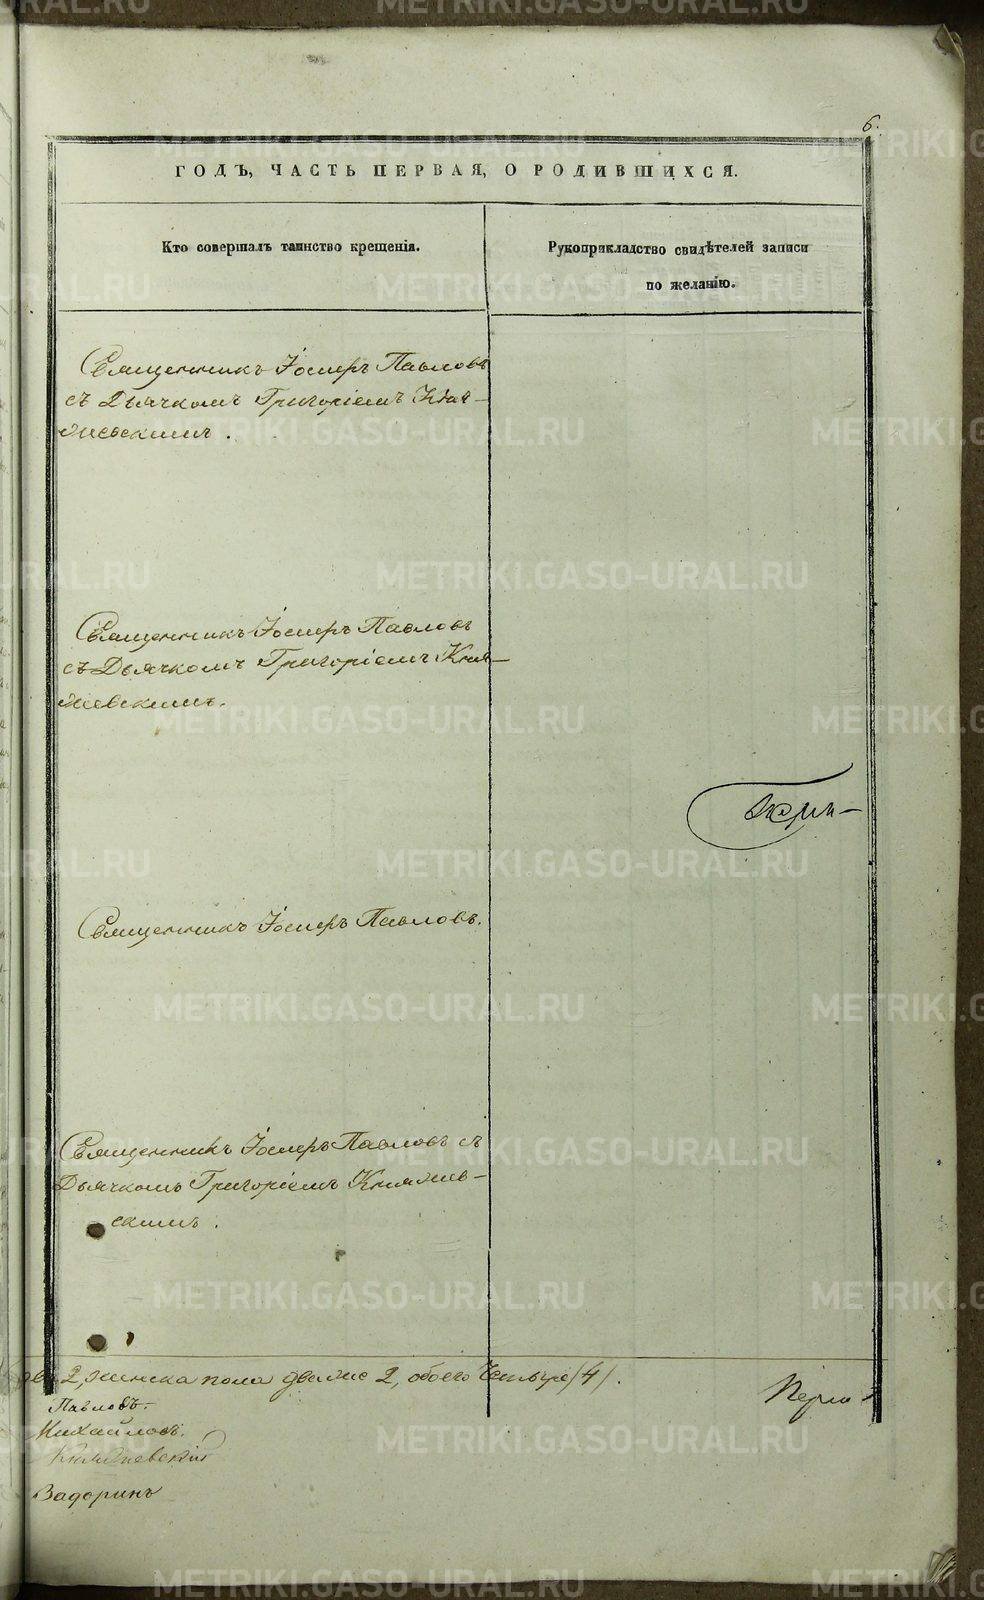 6.
ГОДЪ, ЧАСТЬ ПЕРВАЯ, О РОДИВШИХСЯ.
Кто совершалъ таинство крещенія.
Рукоприкладство свидѣтелей записи
по желанію.
Священникъ Іосифъ Павловъ
съ Дьячкомъ Григоріемъ Кня-
жевскимъ.
Священникъ Іосифъ Павловъ
съ Дьячкомъ Григоріемъ Кня-
жевскимъ.
Священникъ Іосифъ Павловъ.
Священникъ Іосифъ Павловъ съ
Дьячкомъ Григоріемъ Княжев-
скимъ.
2, женска пола двеже 2, обоего Четыре /4/.
Павловъ.
Михайловъ.
Княжевскій
Задоринъ
METRIKI.GASO-URAL.RU